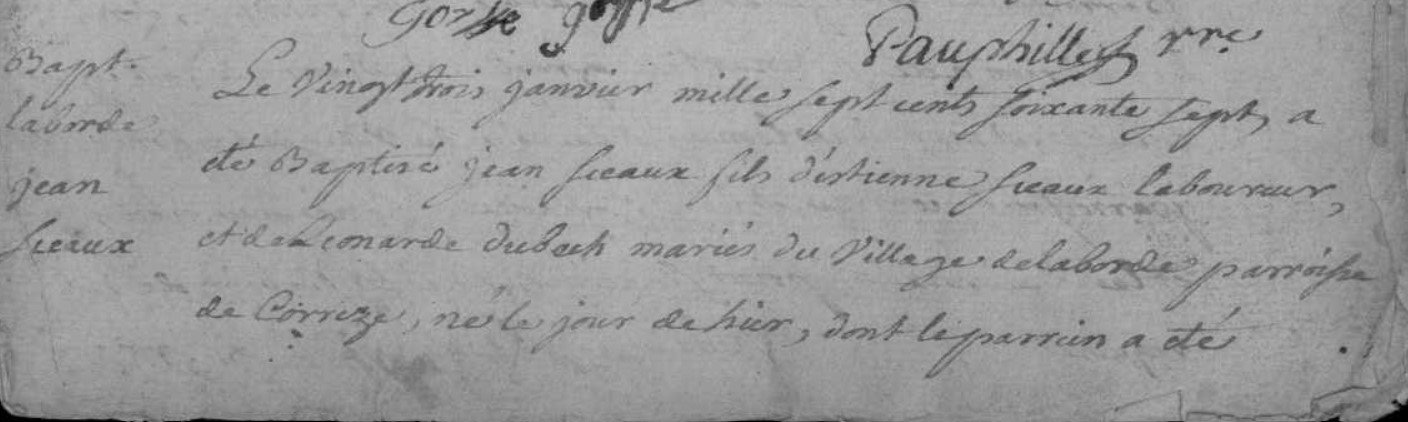 Gorse gorsse
Pauphille vre
Bapt.
laborde
jean
sceaux
Le Vingt trois janvier mille sept cents soixante sept, a
eté Baptisé jean sceaux fils d'éstienne sceaux laboureur,
et de Leonarde dubech mariés du Village delaborde parroisse
de Corrèze, né le jour de hier, dont le parrain a eté